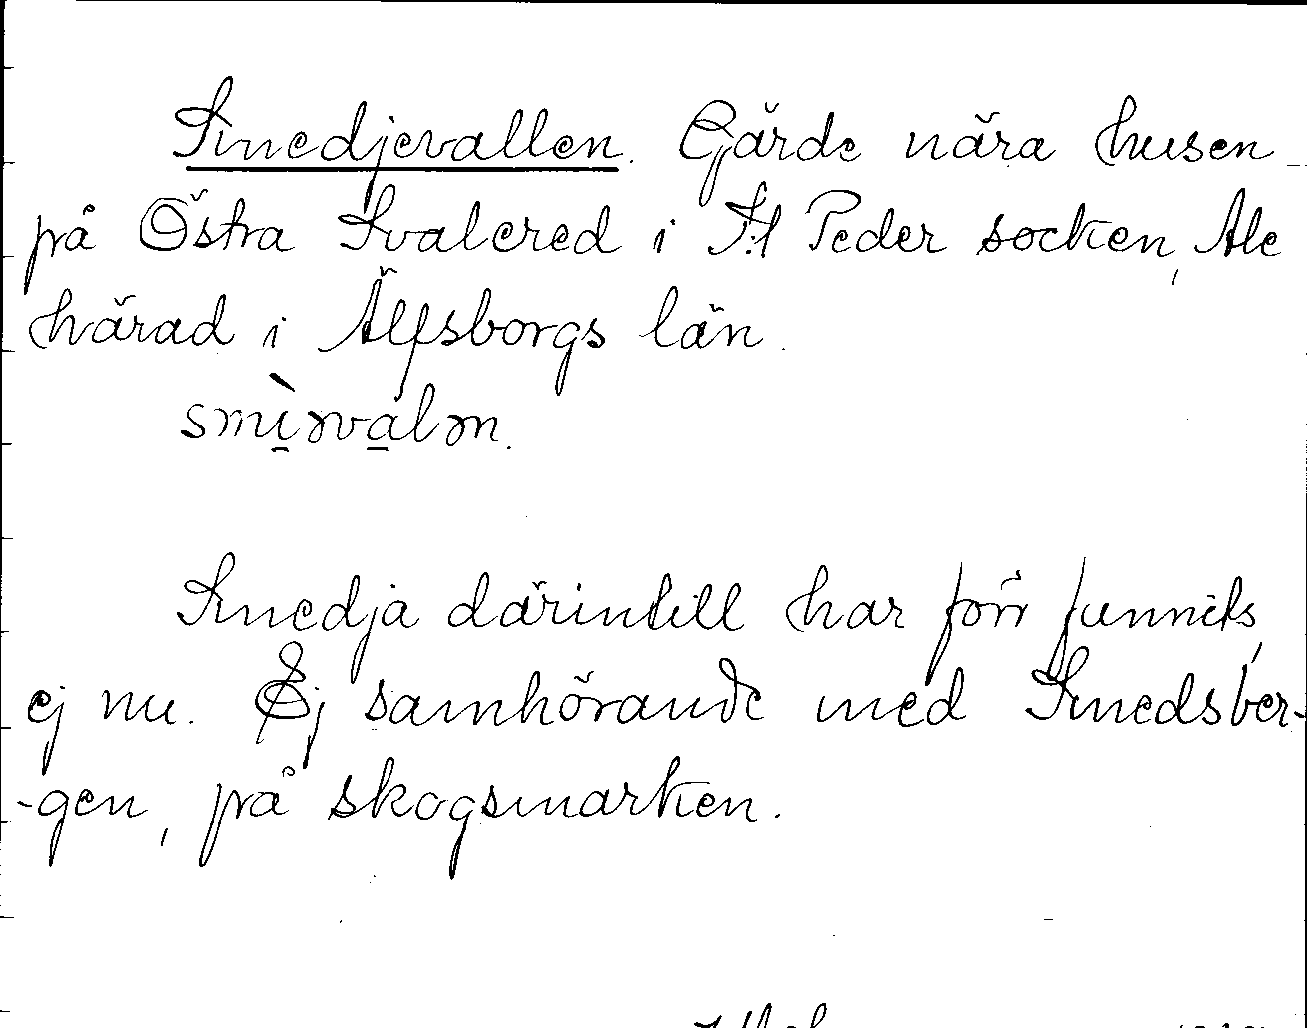 Smedjevallen. Gärde nära husen
på Östra Svalered i S:t Peder socken, Ale
härad i Älfsborgs län.
smìəvalən.
Smedja därintill har förr funnits,
ej nu. Ej samhörande med Smedsber-
-gen, på skogsmarken.